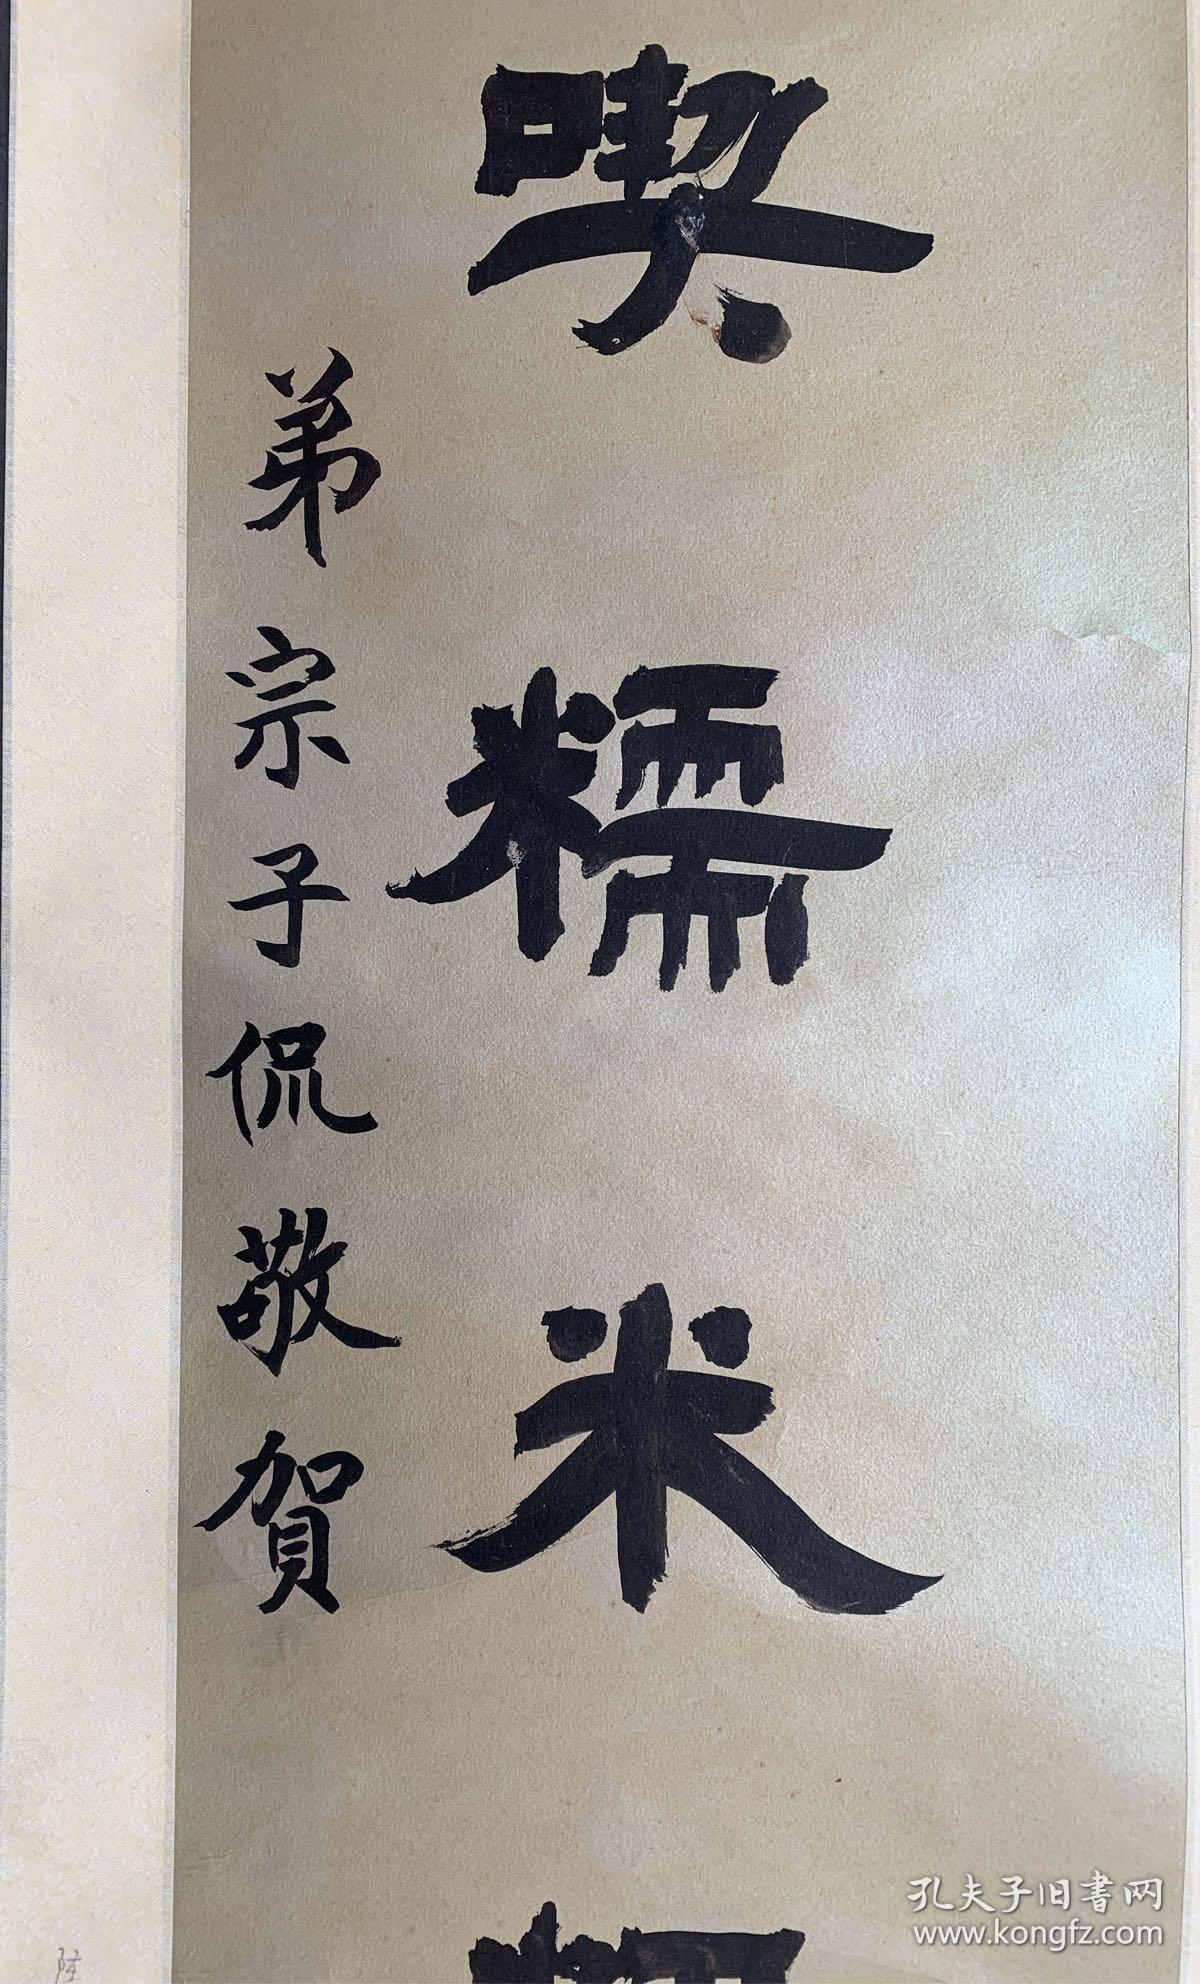 喫糯米
弟宗子侃敬賀
孔夫子旧書网
www.kongfz.com